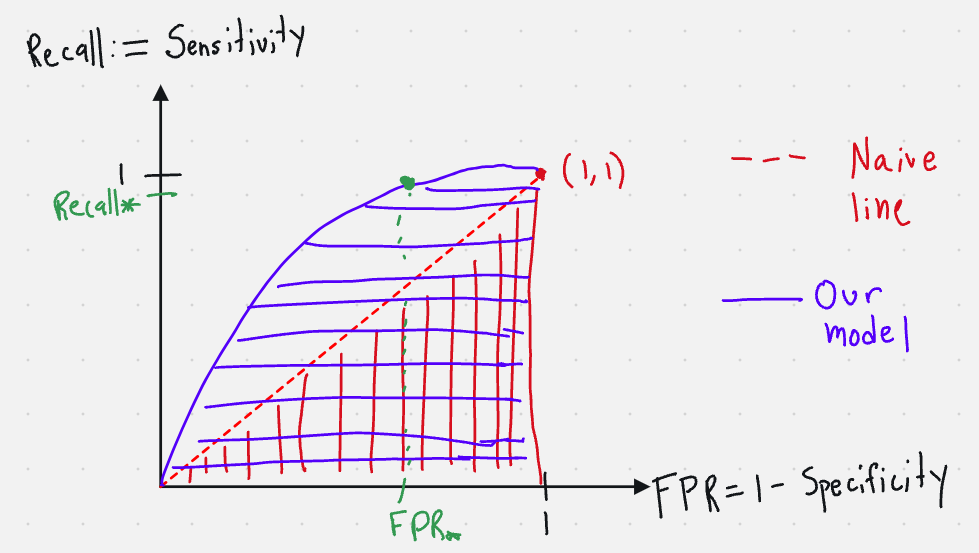 Recall := Sensitivity
1
Recall*
(1,1)
Naive
line
Our
model
FPR = 1 - Specificity
FPR*
1